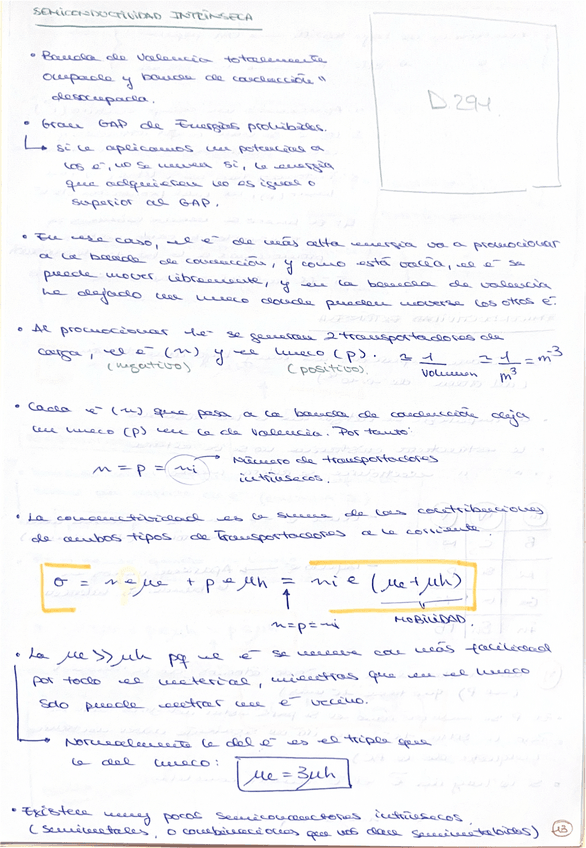 SEMICONDUCTIVIDAD INTRÍNSECA
• Banda de valencia totalmente
ocupada y banda de conducción "
desocupada.
D.294
• Gran GAP de Energías prohibidas.
↳ si le aplicamos un potencial a
los e⁻, no se mueven si, la energía
que adquieran no es igual o
superior al GAP.
• En ese caso, el e⁻ de más alta energía va a promocionar
a la banda de conducción, y como está vacía, el e⁻ se
puede mover libremente, y en la banda de valencia
ha dejado un hueco donde pueden moverse los otros e⁻.
• Al promocionar 1e⁻ se generan 2 transportadores de
carga, el e⁻ (n) y el hueco (p). ≃ 1/Volumen ≃ 1/m³ = m⁻³
(negativo) (positivo)
• Cada e⁻ (n) que pasa a la banda de conducción deja
un hueco (p) en la de valencia. Por tanto:
n = p = ni → Número de transportadores
intrínsecos.
• La conductividad es la suma de las contribuciones
de ambos tipos de transportadores a la corriente.
σ = n e μe + p e μh = ni e (μe + μh)
n=p=ni
MOBILIDAD.
• La μe >> μh pq el e⁻ se mueve con más facilidad
por todo el material, mientras que en el hueco
solo puede entrar un e⁻ vecino.
→ Normalmente la del e⁻ es el triple que
la del hueco:
μe = 3μh
• Existen muy pocos semiconductores intrínsecos.
(semimetales, o combinaciones que dan semimetaloides)
13